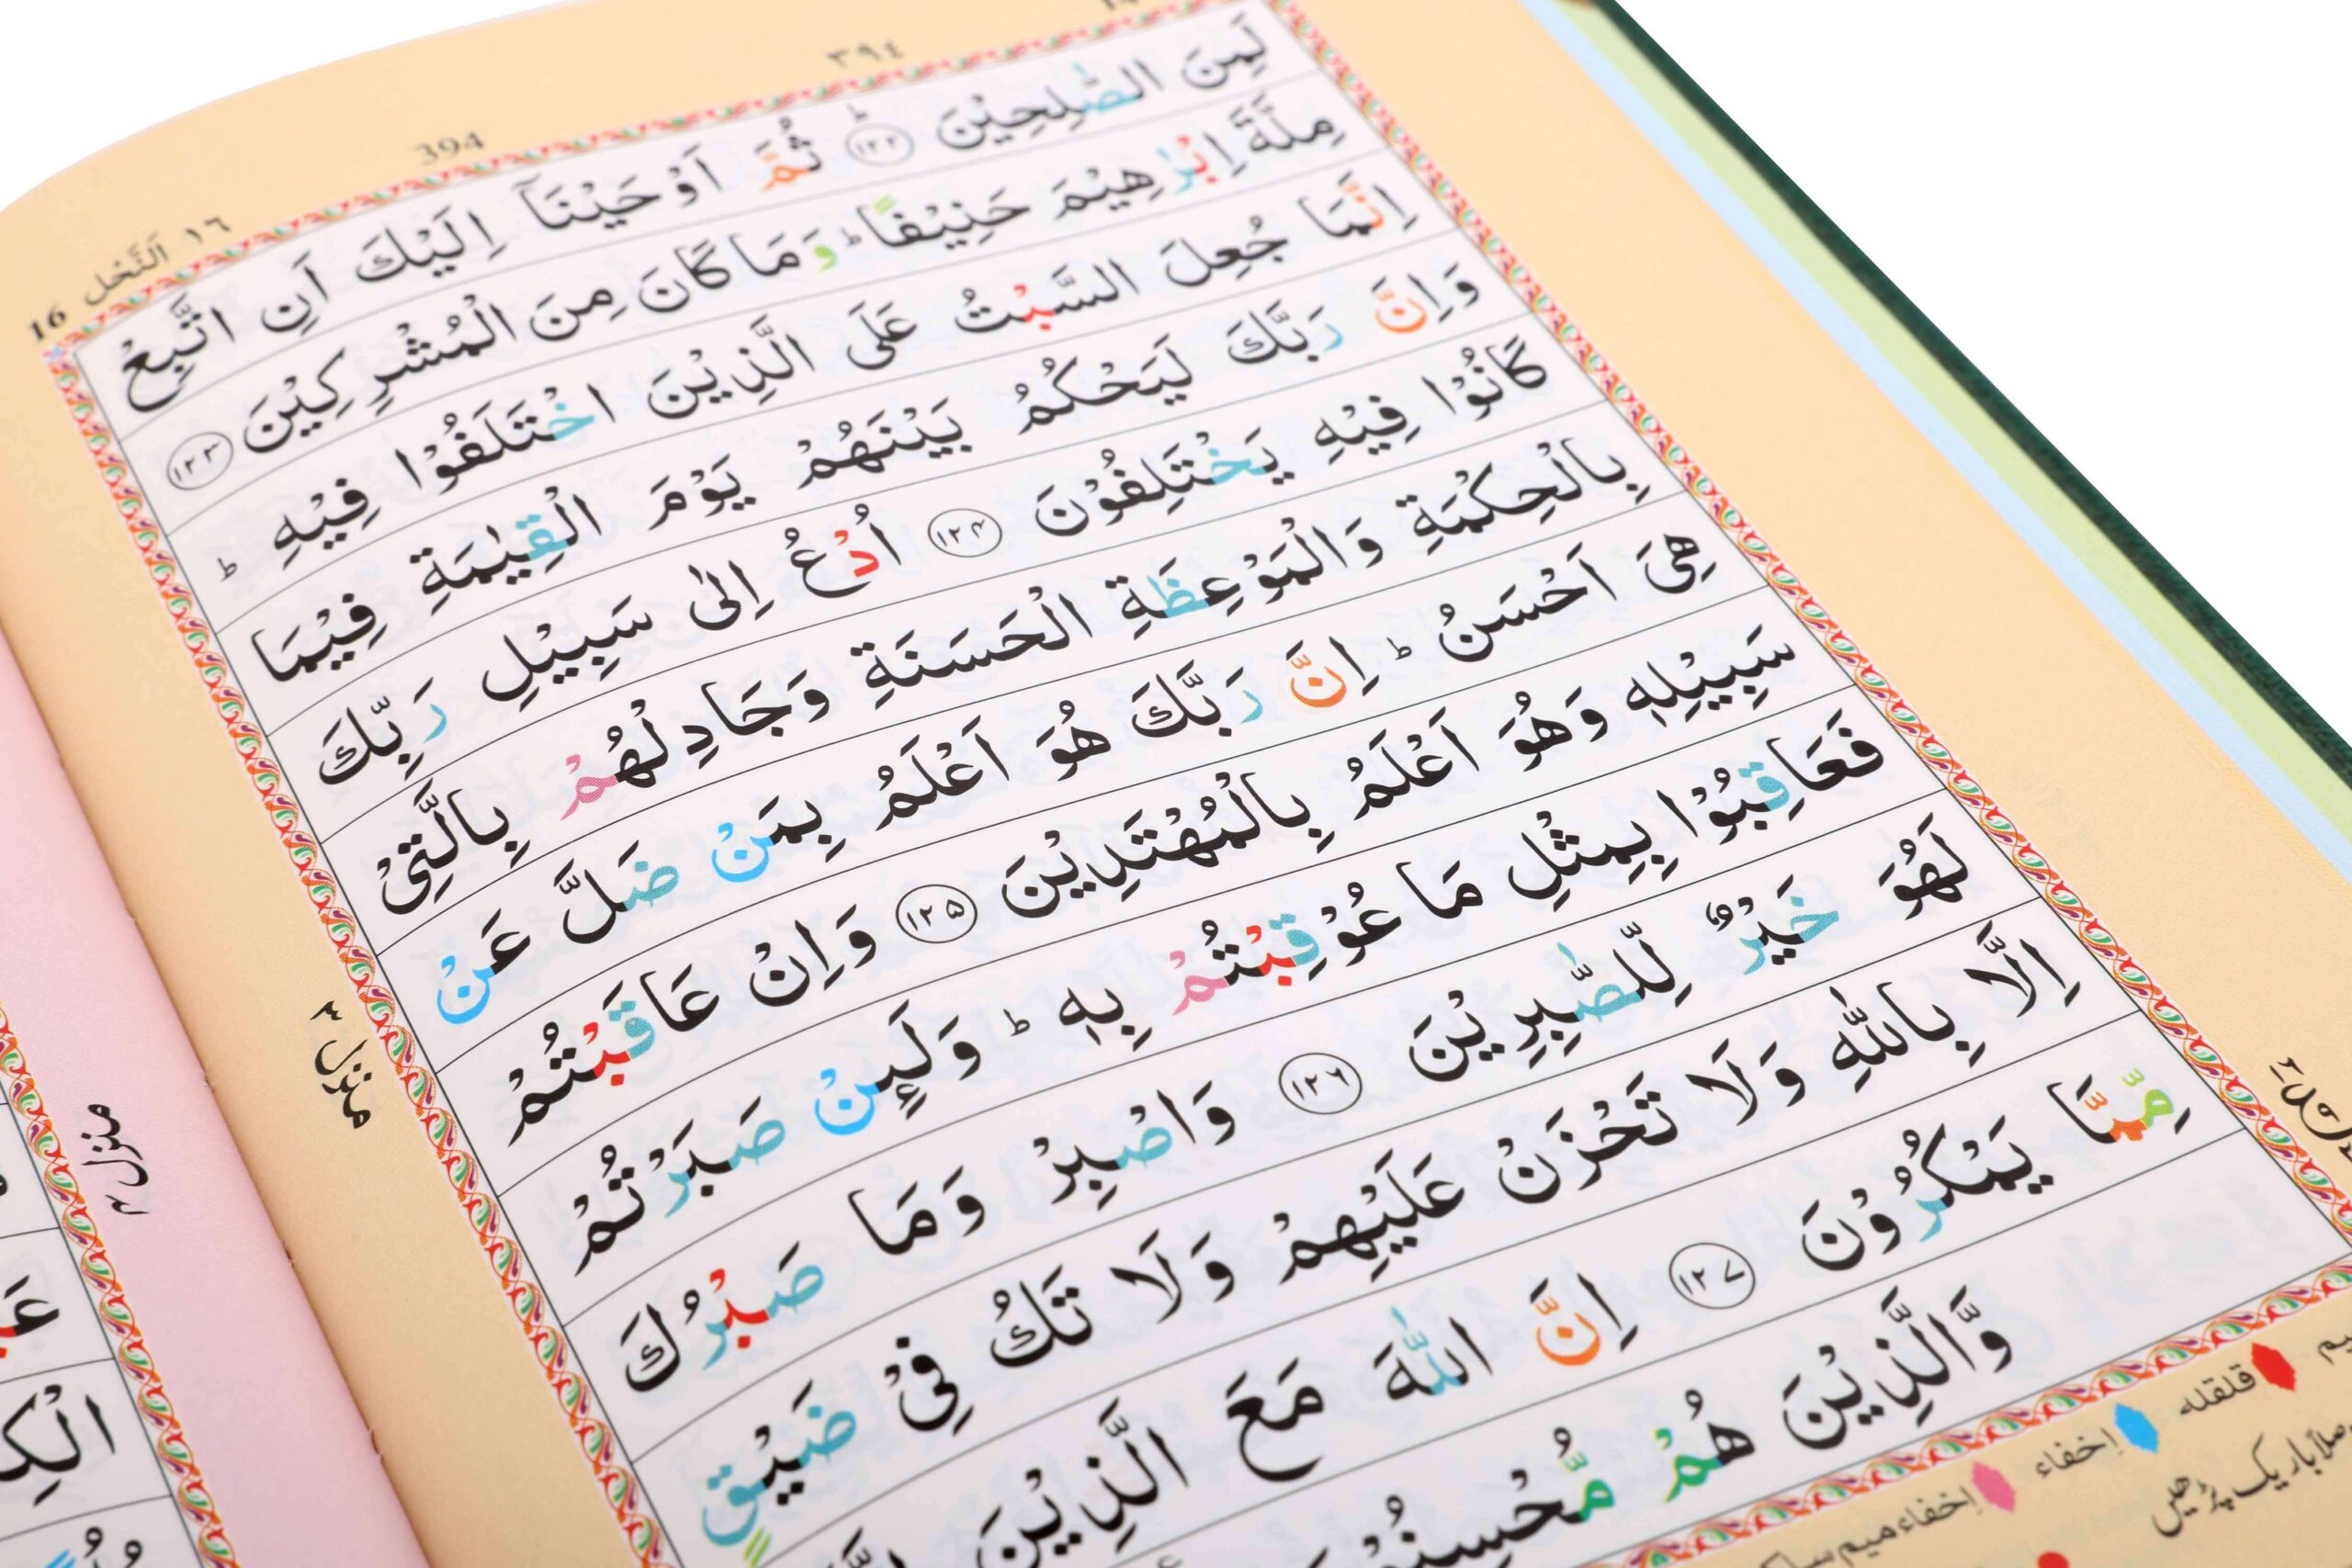 ٣٩٤
394
١٦ اَلنَّحْل 16
لَمِنَ الصّٰلِحِيْنَ ؕ ﴿۱۲۲﴾ ثُمَّ اَوْحَيْنَاۤ اِلَيْكَ اَنِ اتَّبِعْ
مِلَّةَ اِبْرٰهِيْمَ حَنِيْفًا ؕ وَمَا كَانَ مِنَ الْمُشْرِكِيْنَ ﴿۱۲۳﴾
اِنَّمَا جُعِلَ السَّبْتُ عَلَى الَّذِيْنَ اخْتَلَفُوْا فِيْهِ ؕ
وَاِنَّ رَبَّكَ لَيَحْكُمُ بَيْنَهُمْ يَوْمَ الْقِيٰمَةِ فِيْمَا
كَانُوْا فِيْهِ يَخْتَلِفُوْنَ ﴿۱۲۴﴾ اُدْعُ اِلٰى سَبِيْلِ رَبِّكَ
بِالْحِكْمَةِ وَالْمَوْعِظَةِ الْحَسَنَةِ وَجَادِلْهُمْ بِالَّتِيْ
هِيَ اَحْسَنُ ؕ اِنَّ رَبَّكَ هُوَ اَعْلَمُ بِمَنْ ضَلَّ عَنْ
سَبِيْلِهٖ وَهُوَ اَعْلَمُ بِالْمُهْتَدِيْنَ ﴿۱۲۵﴾ وَاِنْ عَاقَبْتُمْ
فَعَاقِبُوْا بِمِثْلِ مَا عُوْقِبْتُمْ بِهٖ ؕ وَلَئِنْ صَبَرْتُمْ
لَهُوَ خَيْرٌ لِّلصّٰبِرِيْنَ ﴿۱۲۶﴾ وَاصْبِرْ وَمَا صَبْرُكَ
اِلَّا بِاللّٰهِ وَلَا تَحْزَنْ عَلَيْهِمْ وَلَا تَكُ فِيْ ضَيْقٍ
مِّمَّا يَمْكُرُوْنَ ﴿۱۲۷﴾ اِنَّ اللّٰهَ مَعَ الَّذِيْنَ
وَّالَّذِيْنَ هُمْ مُّحْسِنُوْنَ
منزل ۳
منزل ۳
قلقله
إخفاء
إخفاء ميم ساكن
باریک پڑھیں